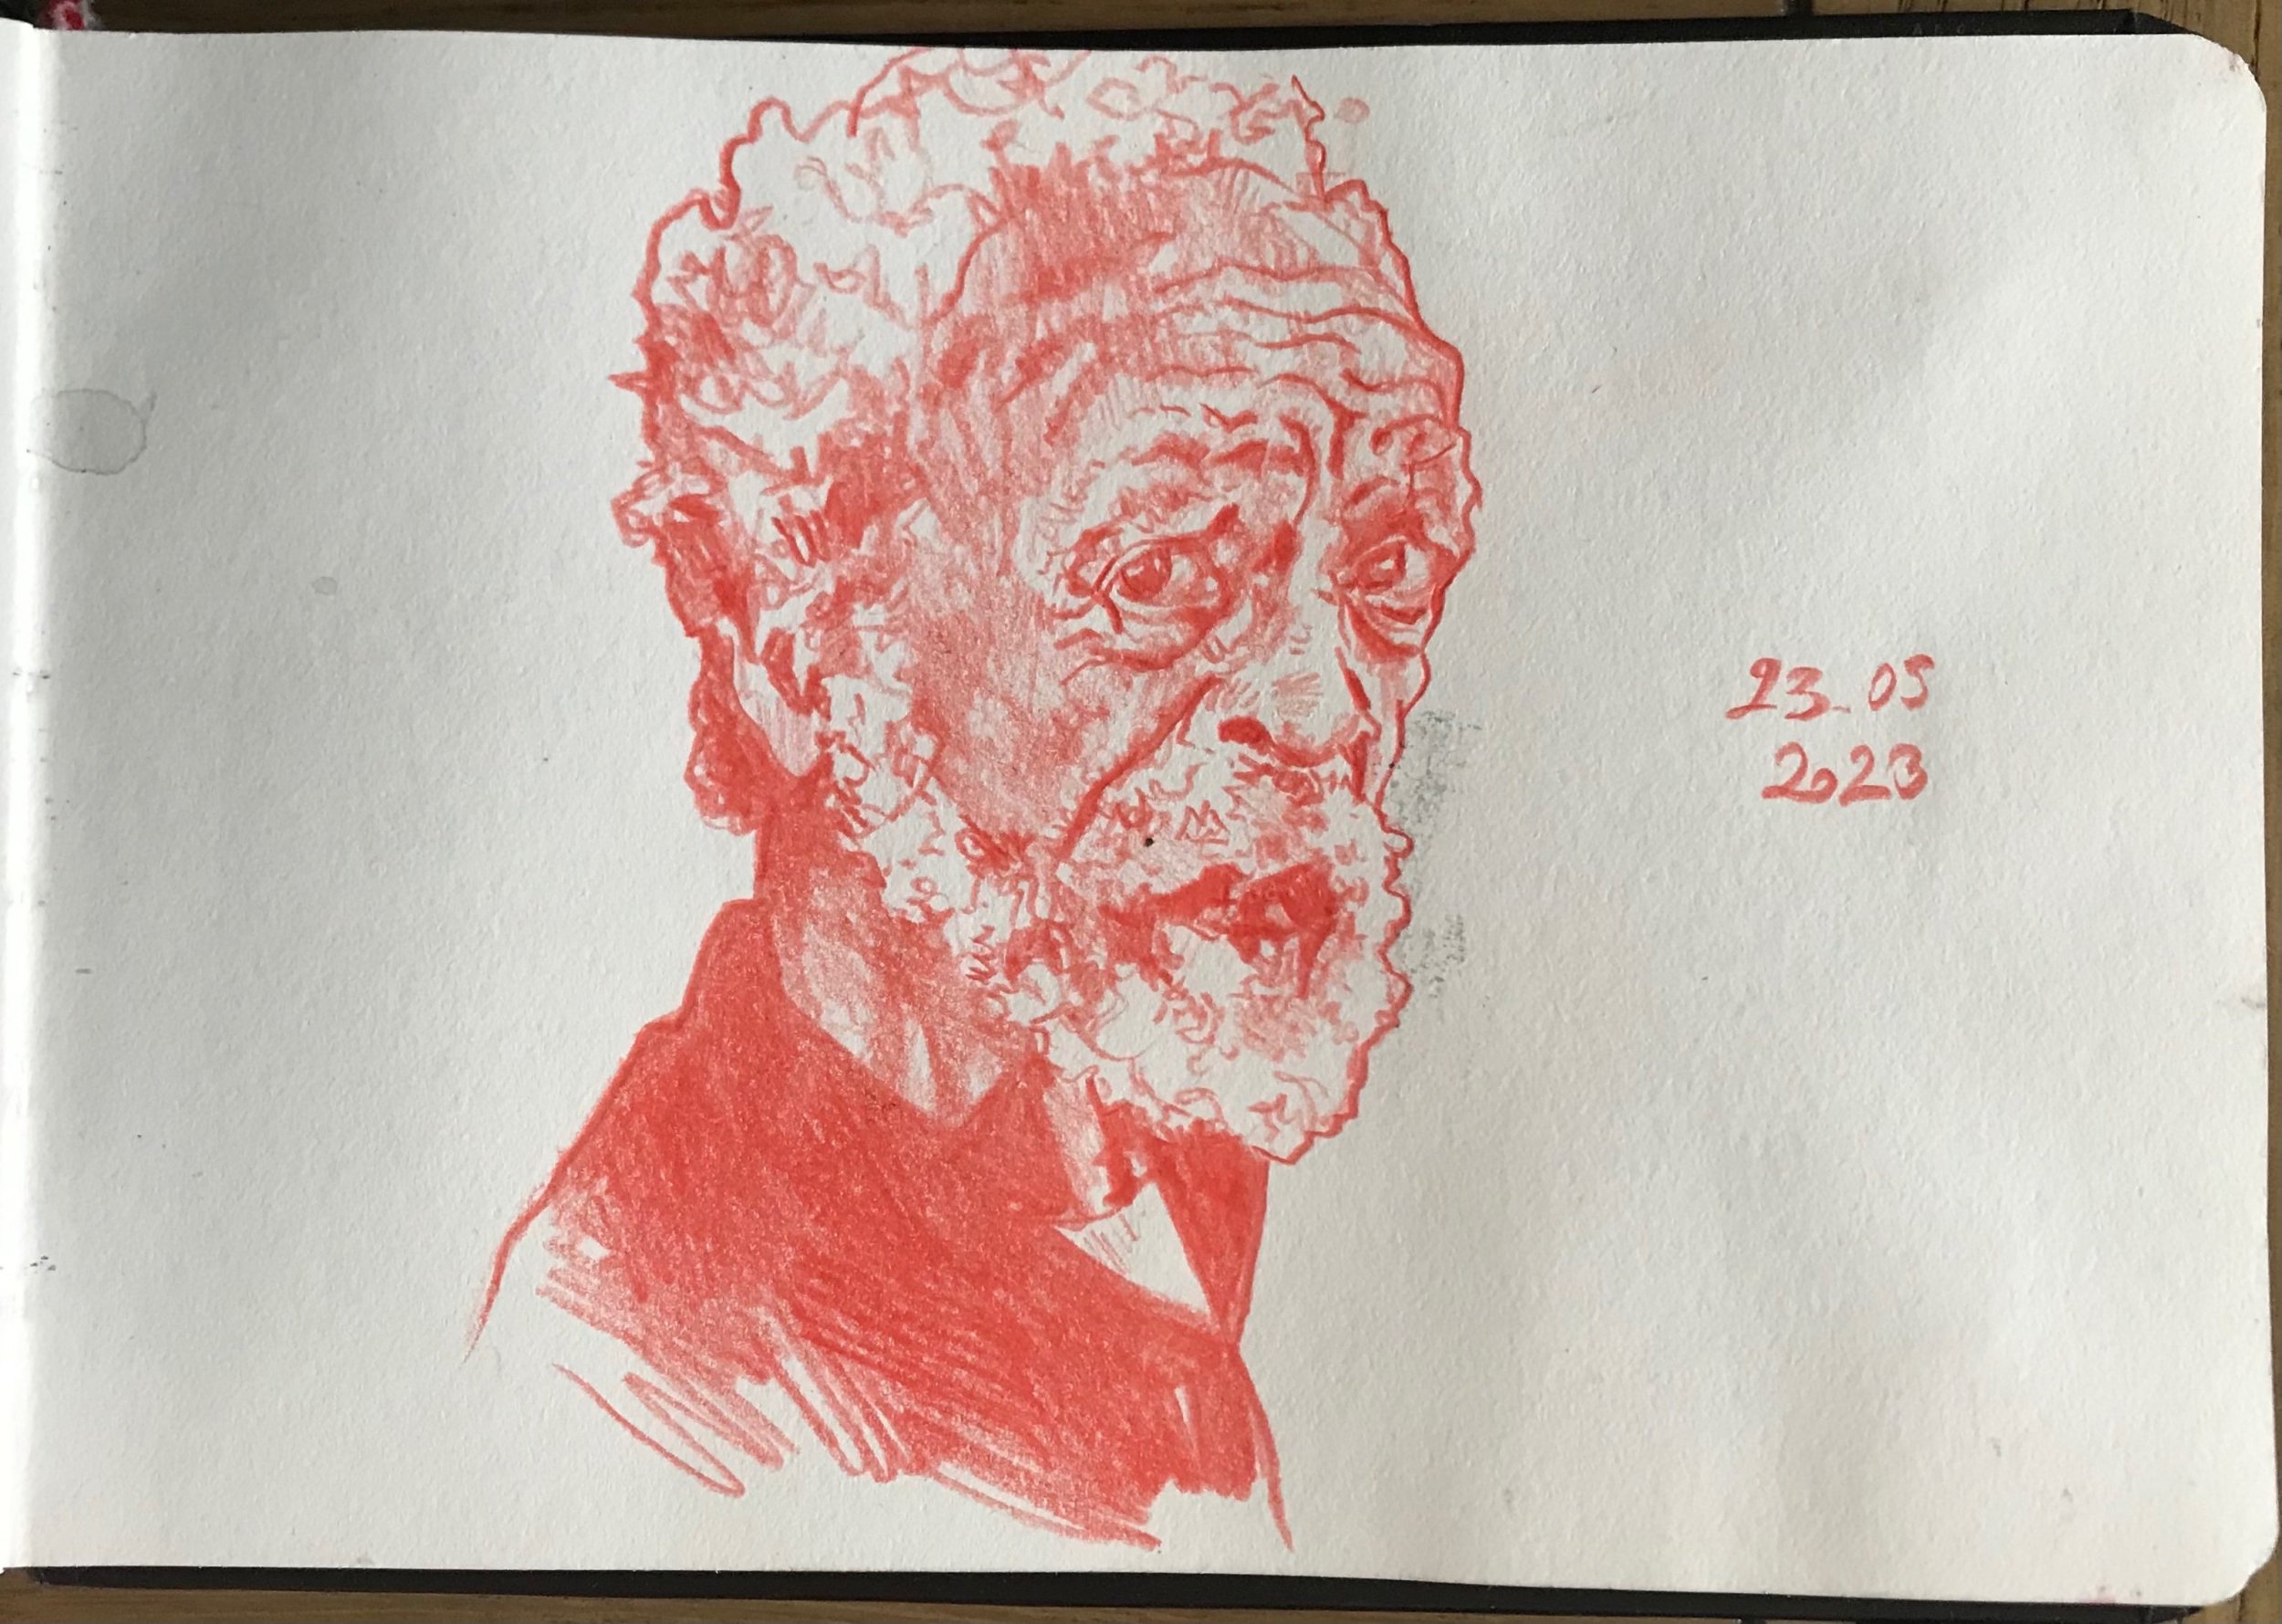 23_05
2023